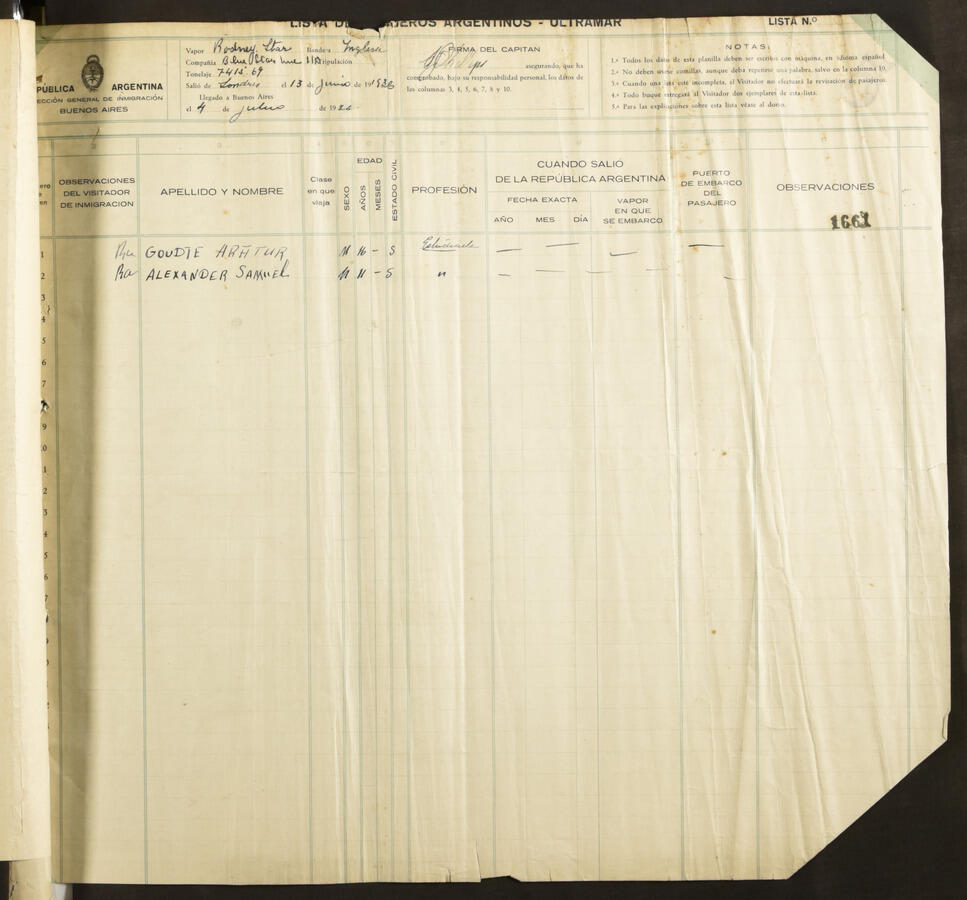 LISTA DE PASAJEROS ARGENTINOS - ULTRAMAR
LISTA N.º
REPÚBLICA ARGENTINA
DIRECCIÓN GENERAL DE INMIGRACIÓN
BUENOS AIRES
Vapor Rodney Star Bandera Inglesa
Compañia Blue Star Line Tripulación
Tonelaje 7415.69
Salió de Londres el 13 de Junio de 19
Llegado a Buenos Aires
el 4 de julio de 19
FIRMA DEL CAPITAN
asegurando, que ha
comprobado, bajo su responsabilidad personal, los datos de
las columnas 3, 4, 5, 6, 7, 8 y 10.
NOTAS:
1.ª Todos los datos de esta planilla deben ser escritos con máquina, en idioma español
2.ª No deben usarse comillas, aunque deba repetirse una palabra, salvo en la columna 10.
3.ª Cuando una lista esté incompleta, el Visitador no efectuará la revisación de pasajeros.
4.ª Todo buque entregará al Visitador dos ejemplares de esta lista.
5.ª Para las explicaciones sobre esta lista véase al dorso.
OBSERVACIONES DEL VISITADOR DE INMIGRACION
APELLIDO Y NOMBRE
Clase en que viaja
SEXO
EDAD
AÑOS
MESES
ESTADO CIVIL
PROFESIÓN
CUANDO SALIÓ DE LA REPÚBLICA ARGENTINA
FECHA EXACTA
AÑO MES DÍA
VAPOR EN QUE SE EMBARCO
PUERTO DE EMBARCO DEL PASAJERO
OBSERVACIONES
1661
1 GOUDIE ARHTUR M 16 - S Estudiante — — — —
2 ALEXANDER SAMUEL M 11 - S " — — — — —
3
4
5
6
7
9
0
1
2
3
4
5
6
7